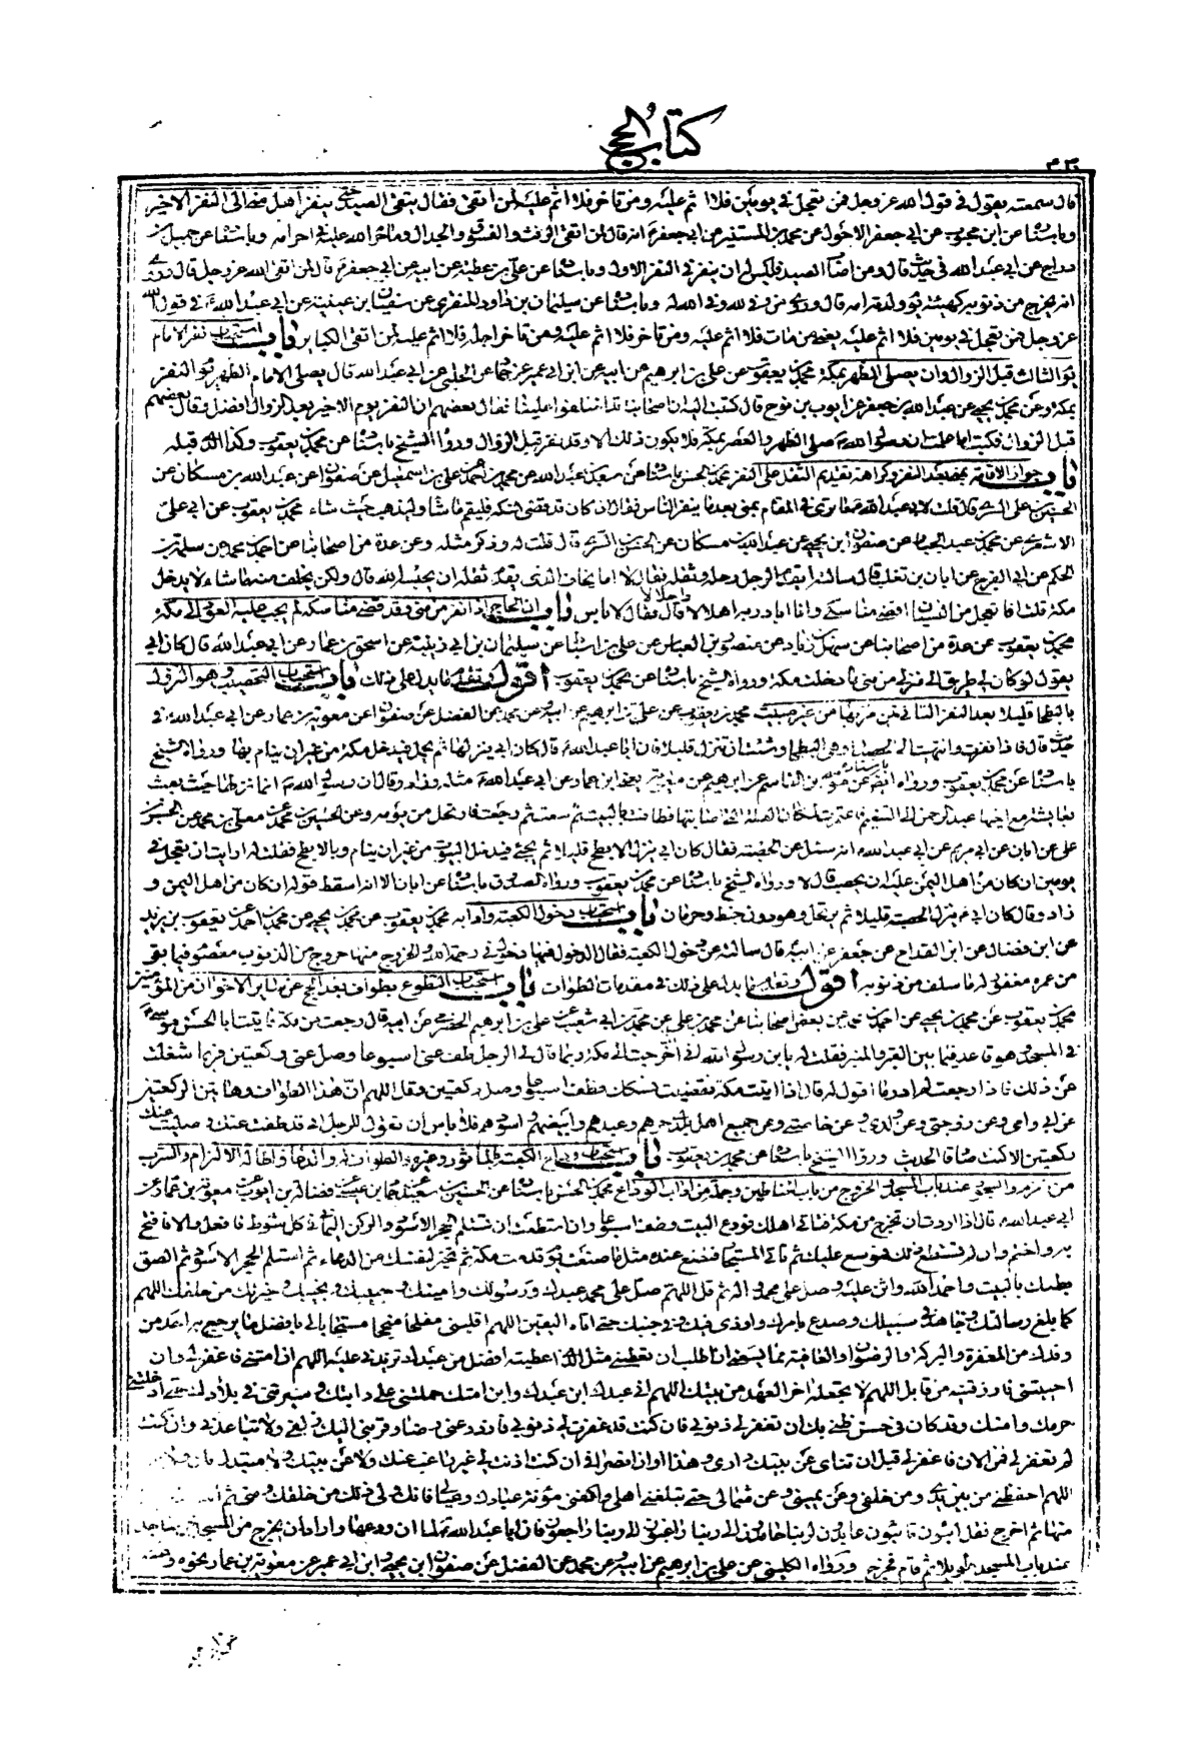 كتاب الحج
قال سمعته يقول في قول الله عز وجل فمن تعجل في يومين فلا اثم عليه ومن تأخر فلا اثم عليه لمن اتقى فقال يتقى الصيد حتى ينفر اهل منى الى النفر الاخير
وباسناده عن ابن محبوب عن ابي جعفر الاحول عن محمد بن المستنير عن ابي جعفر انه قال لمن اتقى الرفث والفسوق والجدال وما حرم الله عليه في احرامه وباسناده عن جميل بن
دراج عن ابي عبد الله في حديث قال ومن اصاب الصيد فليس له ان ينفر في النفر الاول وباسناده عن علي بن عطية عن ابيه عن ابي جعفر قال لمن اتقى الله عز وجل قال وروى
انه يخرج من ذنوبه كهيئة يوم ولدته امه قال وروى من وفى لله وفى الله له وباسناده عن سليمان بن داود المنقري عن سفيان بن عيينة عن ابي عبد الله في قول الله
عز وجل فمن تعجل في يومين فلا اثم عليه يعنى من مات فلا اثم عليه ومن تأخر فلا اثم عليه ومن تأخر اجله فلا اثم عليه لمن اتقى الكباير باب استحباب نفر الامام
يوم الثالث قبل الزوال وان يصلى الظهر بمكة محمد بن يعقوب عن علي بن ابرهيم عن ابيه عن ابن ابي عمير عن حماد عن الحلبي عن ابي عبد الله قال يصلى الامام الظهر يوم النفر
بمكة وعن محمد بن يحيى عن عبد الله بن جعفر عن ايوب بن نوح قال كتبت اليه ان اصحابنا قد اختلفوا علينا فقال بعضهم ان النفر يوم الاخير بعد الزوال افضل وقال بعضهم
قبل الزوال فكتب اما علمت ان رسول الله صلى الظهر والعصر بمكة فلا يكون ذلك الا وقد نفر قبل الزوال ورواه الشيخ باسناده عن محمد بن يعقوب وكذا الذى قبله
باب جواز الاقامة بمنى بعد النفر وكراهة تقديم الثقل على النفر محمد بن الحسن باسناده عن سعد بن عبد الله عن محمد بن احمد عن علي بن اسمعيل عن صفوان عن عبد الله بن مسكان عن
الحسين بن علي السري قال قلت لابي عبد الله ما ترى في المقام بمنى بعد ما ينفر الناس فقال اذا كان قد قضى نسكه فليقم ما شاء وليذهب حيث شاء محمد بن يعقوب عن ابي علي
الاشعري عن محمد بن عبد الجبار عن صفوان بن يحيى عن عبد الله بن مسكان عن الحسن بن السري قال قلت له وذكر مثله وعن عدة من اصحابنا عن احمد بن محمد عن
الحكم عن ابي الفرج عن ابان بن تغلب قال سألته ايقدم الرجل رحله وثقله قبل النفر فقال لا اما يخاف الذى يقدم ثقله ان يحبسه الله قال ولكن يخلف منه ما شاء لا يدخل
مكة قلت افاتعجل من النسيان اقضى مناسكى وانا ابادر به اهلالا واحلالا قال فقال لا باس باب ان الحاج اذا نفر من منى وقد قضى مناسكه لم يجب عليه العود الى مكة
محمد بن يعقوب عن عدة من اصحابنا عن سهل بن زياد عن منصور بن العباس عن علي بن اسباط عن سليمان بن ابي زينبة عن اسحق بن عمار عن ابي عبد الله قال كان ابي
يقول لو كان لي طريق الى منزلى من منى ما دخلت مكة ورواه الشيخ باسناده عن محمد بن يعقوب اقول وتقدم ما يدل على ذلك باب استحباب التحصيب وهو النزول
بالبطحاء قليلا بعد النفر الثاني محمد بن يعقوب عن علي بن ابرهيم عن ابيه وعن محمد عن الفضل عن صفوان عن معوية بن عمار عن ابي عبد الله في
حديث قال فاذا نفرت وانتهيت الى الحصباء وهى البطحاء وشئت ان تنزل قليلا فان ابا عبد الله قال كان ابي ينزلها ثم يحمل فيدخل مكة من غير ان ينام بها ورواه الشيخ
باسناده عن محمد بن يعقوب ورواه ايضا عن موسى بن القاسم عن ابرهيم عن معوية بن عمار عن ابي عبد الله مثله وزاد وقال ان رسول الله انما نزلها حيث بعث
بعايشة مع اخيها عبد الرحمن الى التنعيم فاعتمرت لمكان العلة التى اصابتها فطافت بالبيت ثم سعت ثم رجعت فارتحل من يومه وعن الحسين بن محمد عن معلى بن محمد عن الحسن بن
علي عن ابان عن ابي مريم عن ابي عبد الله انه سئل عن الحصبة فقال كان ابي ينزل الابطح قليلا ثم يجيئ فيدخل البيوت من غير ان ينام بالابطح فقلت له ارايت ان تعجل في
يومين ان كان من اهل اليمن عليه ان يحصب قال لا ورواه الشيخ باسناده عن محمد بن يعقوب ورواه الصدوق باسناده عن ابان الا انه اسقط قوله ان كان من اهل اليمن و
زاد وقال كان ابي ينزل الحصبة قليلا ثم يرتحل وهو دون خبط وحرمان باب استحباب دخول الكعبة وآدابه محمد بن يعقوب عن محمد بن يحيى عن محمد بن احمد عن يعقوب بن يزيد
عن ابن فضال عن ابن القداح عن جعفر عن ابيه قال سألته عن دخول الكعبة فقال الدخول فيها دخول في رحمة الله والخروج منها خروج من الذنوب معصوم فيما بقى
من عمره مغفور له ما سلف من ذنوبه اقول وتقدم ما يدل على ذلك في مقدمات الطواف باب استحباب التطوع بطواف بعد الحج عن ساير الاخوان من المؤمنين
محمد بن يعقوب عن محمد بن يحيى عن احمد بن محمد عن بعض اصحابنا عن محمد بن علي عن محمد بن ابي شعيب عن علي بن ابرهيم الحضرمي عن ابيه قال رجعت من مكة فاتيت ابا الحسن موسى
في المسجد وهو قاعد فيما بين القبر والمنبر فقلت له يا بن رسول الله اني اذا خرجت الى مكة ربما قال لى الرجل طف عنى اسبوعا وصل عنى ركعتين فربما شغلت
عن ذلك فاذا رجعت لم ادر ما اقول له قال اذا اتيت مكة فقضيت نسكك فطف اسبوعا وصل ركعتين وقل اللهم ان هذا الطواف وهاتين الركعتين
عن ابي وامى وعن زوجتى وعن ولدى وعن خاصتى وعن جميع اهل بلدى حرهم وعبدهم وابيضهم واسودهم فلا باس ان تقول للرجل انى قد طفت عنك وصليت عنك
ركعتين الا كنت صادقا الحديث ورواه الشيخ باسناده عن محمد بن يعقوب باب استحباب وداع الكعبة بالماثور وغيره والطواف له
من زمزم والسجود عند باب المسجد والخروج من باب الحناطين وجملة من آداب الوداع محمد بن الحسن باسناده عن الحسين بن سعيد عن حماد بن عيسى وفضالة بن ايوب عن معوية بن عمار عن
ابي عبد الله قال اذا اردت ان تخرج من مكة فتأتى اهلك فودع البيت وطف اسبوعا وان استطعت ان تستلم الحجر الاسود والركن اليمانى في كل شوط فافعل والا فافتح
به واختم وان لم تستطع ذلك فموسع عليك ثم تأتى المستجار فتصنع عنده مثل ما صنعت يوم قدمت مكة ثم تخير لنفسك من الدعاء ثم استلم الحجر الاسود ثم الصق
بطنك بالبيت واحمد الله واثن عليه وصل على محمد وآله ثم قل اللهم صل على محمد عبدك ورسولك وامينك وحبيبك ونجيبك وخيرتك من خلقك اللهم
كما بلغ رسالتك وجاهد في سبيلك وصدع بامرك واوذى فيك وفى جنبك حتى اتاه اليقين اللهم اقلبنى مفلحا منجحا مستجابا لى بافضل ما يرجع به احد من
وفدك من المغفرة والبركة والرضوان والعافية مما يسعنى ان اطلب ان تعطينى مثل الذى اعطيته افضل من عبدك تزيدنى عليه اللهم ان امتنى فاغفر لى وان
احييتنى فارزقنيه من قابل اللهم لا تجعله اخر العهد من بيتك اللهم انى عبدك ابن عبدك وابن امتك حملتنى على دابتك وسيرتنى في بلادك حتى ادخلتنى
حرمك وامنك وقد كان في حسن ظنى بك ان تغفر لى ذنوبى فان كنت قد غفرت لى ذنوبى فازدد عنى رضا وقربنى اليك زلفى ولا تباعدنى وان كنت
لم تغفر لى فمن الان فاغفر لى قبل ان تنأى عن بيتك دارى وهذا اوان انصرافى ان كنت اذنت لى غير راغب عنك ولا عن بيتك ولا مستبدل
اللهم احفظنى من بين يدى ومن خلفى وعن يمينى وعن شمالى حتى تبلغنى اهلى واكفنى مؤنة عبادك وعيالى فانك ولى ذلك من خلقك ومنى ثم
منها ثم اخرج فقل آئبون تائبون عابدون لربنا حامدون الى ربنا راغبون الى ربنا راجعون فان ابا عبد الله لما ان ودعها واراد ان يخرج من المسجد خر ساجدا
عند باب المسجد طويلا ثم قام فخرج ورواه الكلينى عن علي بن ابرهيم عن ابيه وعن محمد عن الفضل عن صفوان بن يحيى وابن ابي عمير عن معوية بن عمار نحوه